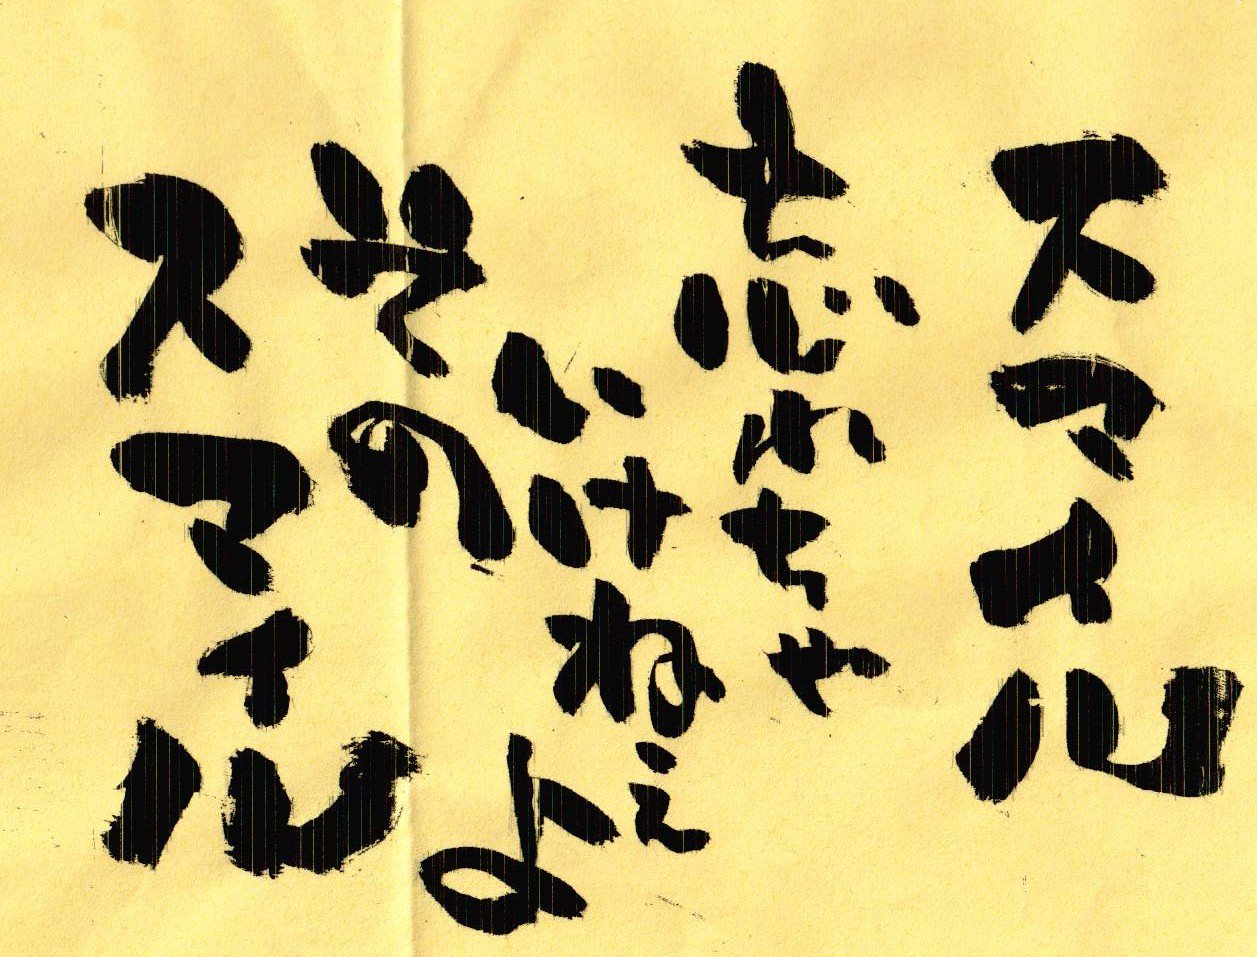 スマイル
忘れちゃ
いけねえよ
その
スマイル